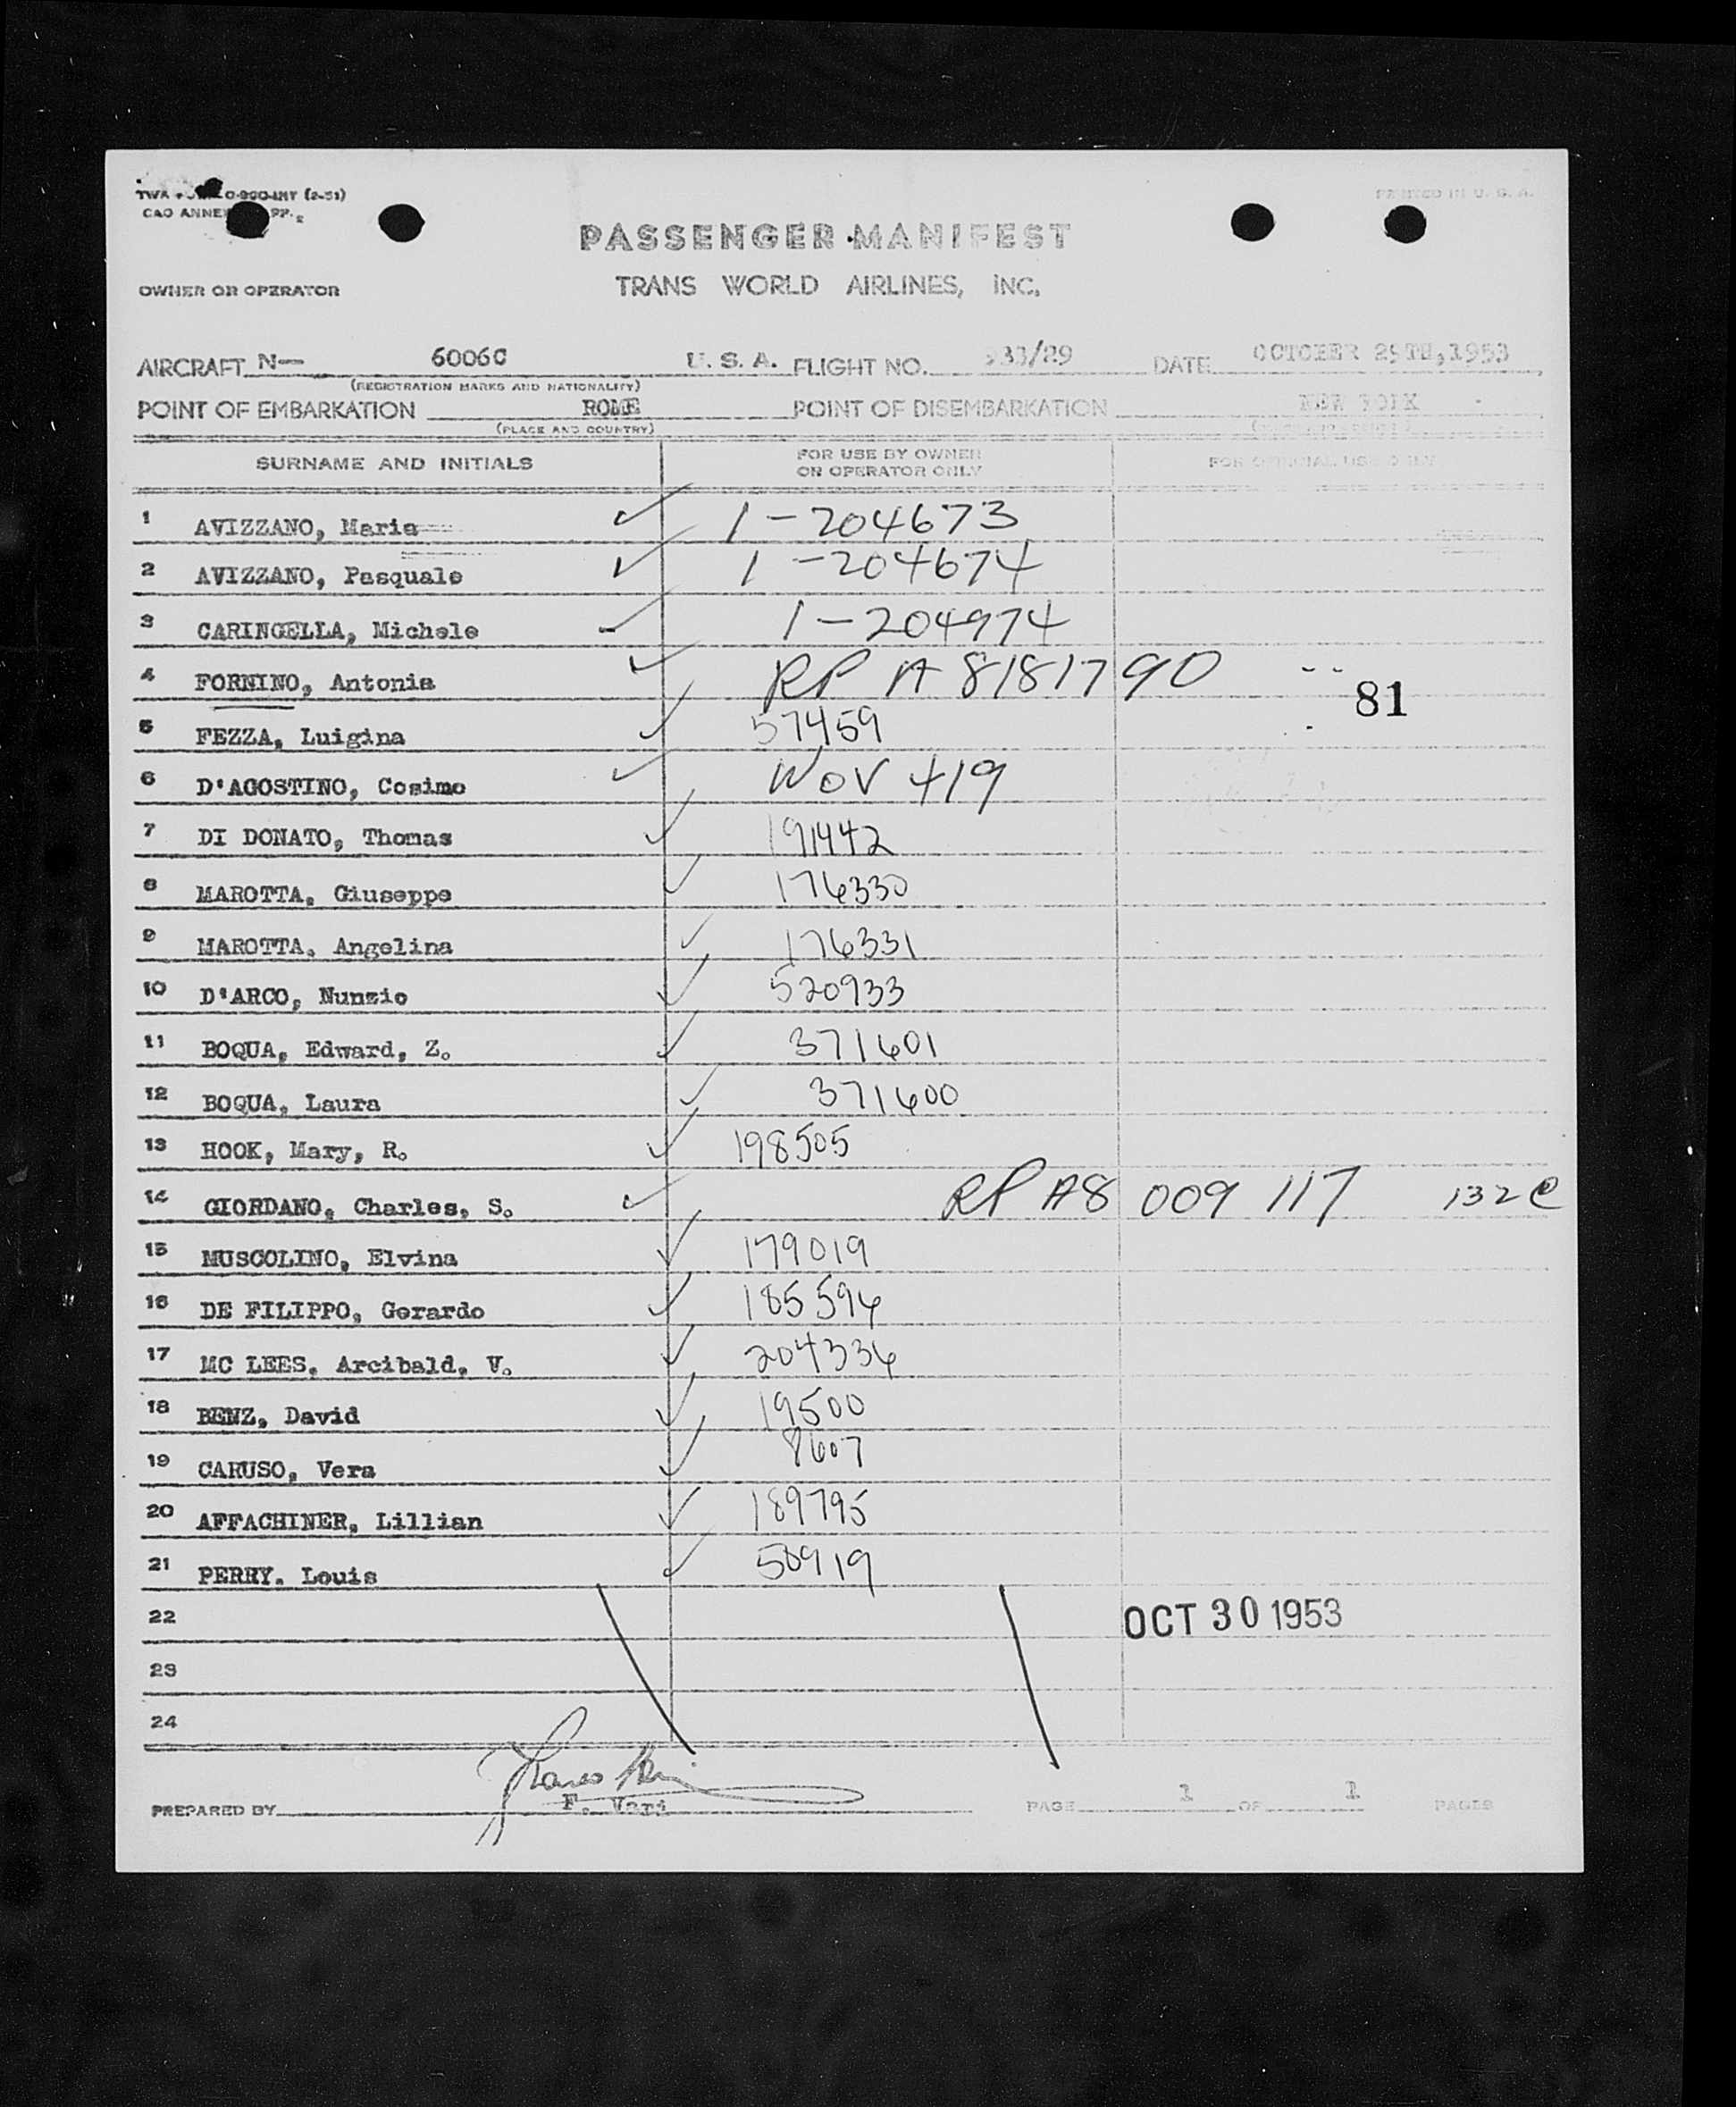 PRINTED IN U. S. A.
CAO ANNEX
PASSENGER MANIFEST
OWNER OR OPERATOR TRANS WORLD AIRLINES, INC.
AIRCRAFT N— 6006C U. S. A. FLIGHT NO. 933/29 DATE OCTOBER 29TH,1953
(REGISTRATION MARKS AND NATIONALITY)
POINT OF EMBARKATION ROME POINT OF DISEMBARKATION NEW YORK
(PLACE AND COUNTRY)
SURNAME AND INITIALS FOR USE BY OWNER OR OPERATOR ONLY FOR OFFICIAL USE ONLY
1 AVIZZANO, Maria 1-204673
2 AVIZZANO, Pasquale 1-204674
3 CARINGELLA, Michele 1-204974
4 FORNINO, Antonia RP A 8181790
81
5 FEZZA, Luigina 57459
6 D'AGOSTINO, Cosimo WOV 419
7 DI DONATO, Thomas 191442
8 MAROTTA, Giuseppe 176330
9 MAROTTA, Angelina 176331
10 D'ARCO, Nunzio 520933
11 BOQUA, Edward, Z. 371601
12 BOQUA, Laura 371600
13 HOOK, Mary, R. 198505
14 GIORDANO, Charles, S. RP A8 009 117 132 e
15 MUSCOLINO, Elvina 179019
16 DE FILIPPO, Gerardo 185596
17 MC LEES, Arcibald, V. 204336
18 BENZ, David 19500
19 CARUSO, Vera 8607
20 AFFACHINER, Lillian 189795
21 PERRY. Louis 58919
22 OCT 30 1953
23
24
PREPARED BY F. Vari PAGE 1 OF 1 PAGES